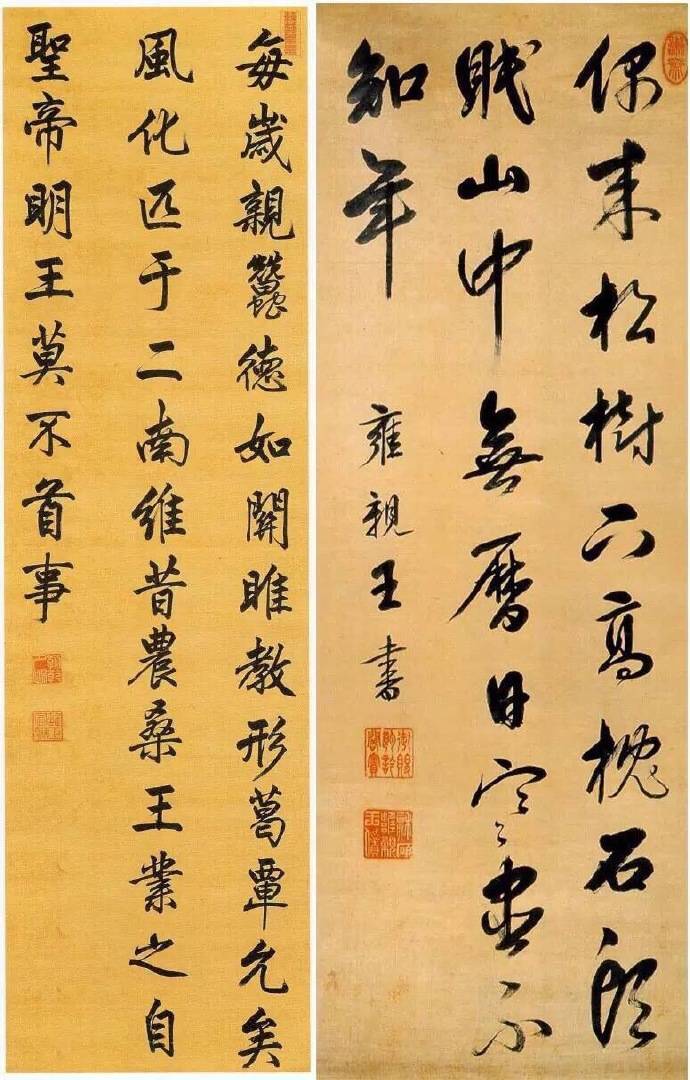 偶来松樹下高枕石頭
眠山中無曆日寒盡不
知年
雍親王書
每歲親蠶德如關雎教形葛覃允矣
風化匹于二南維昔農桑王業之自
聖帝明王莫不首事